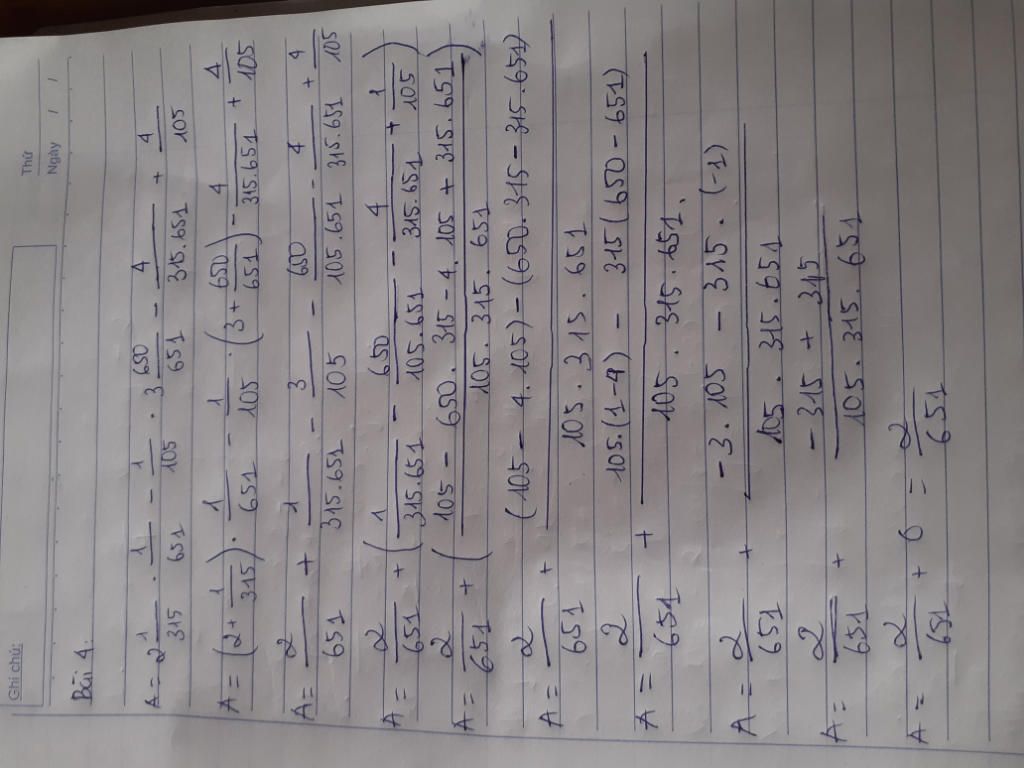 Ghi chú:
Thứ
Ngày / /
Bài 4:
A = 2 1/315 . 1/651 - 1/105 . 3 650/651 - 4/315.651 + 4/105
A = (2 + 1/315) . 1/651 - 1/105 . (3 + 650/651) - 4/315.651 + 4/105
A = 2/651 + 1/315.651 - 3/105 - 650/105.651 - 4/315.651 + 4/105
A = 2/651 + (1/315.651 - 650/105.651 - 4/315.651 + 1/105)
A = 2/651 + (105 - 650.315 - 4.105 + 315.651)/105.315.651
A = 2/651 + (105 - 4.105) - (650.315 - 315.651)/105.315.651
A = 2/651 + 105.(1-4) - 315(650 - 651)/105.315.651.
A = 2/651 + -3.105 - 315.(-1)/105.315.651
A = 2/651 + -315 + 315/105.315.651
A = 2/651 + 0 = 2/651